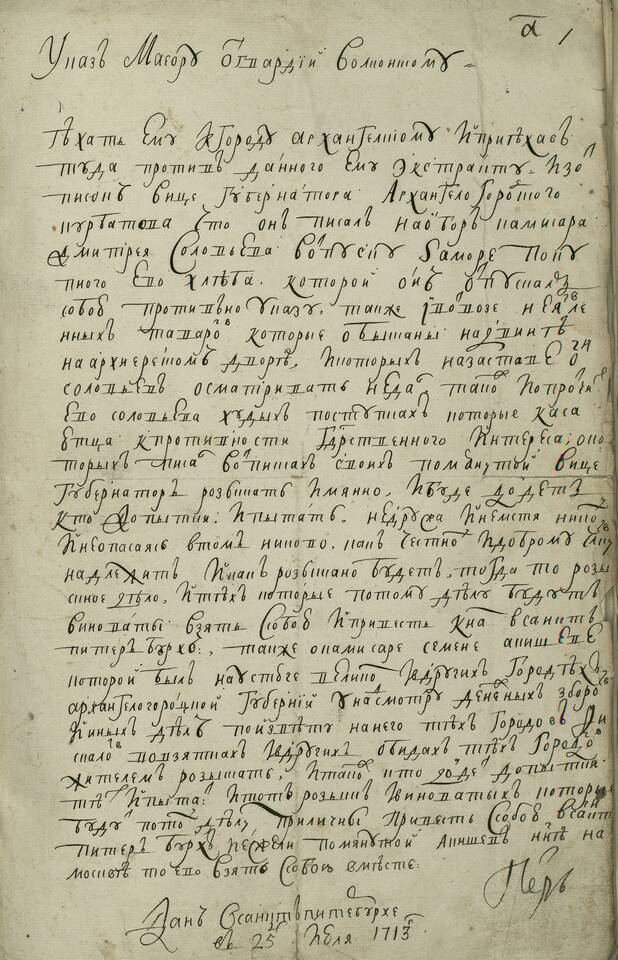 а 1
Указъ Маеору отгвардiй волконскому
ѣхать Ему К городу архангелскому и приѣхавъ
туда противъ данного Ему Экстракту изо
писемъ вице губернатора Архангелогороцкого
курбатова что онъ писалъ на оборъ камисара
дмитрея Соловьева во отпуску за море Полу
тного Ево хлѣба. которой онъ отпускалъ
собою противно указу, также i о вывозе неявле
нных таваровъ которые обысканы на двинѣ
на архиерѣском дворѣ, и которых на заставе
соловьевъ осматривать не далъ також и о протчих
Ево соловьева худыхъ поступкахъ которые каса
ютца к противности Гдрственного Интереса; о ко
торыхъ писалъ во писмах своихъ помянутой вице
Губернаторъ розыскать имянно, и буде дойдетъ
кто до пытки: и пытать. не дружа и не мстя никому
и не опасаясь в томъ никово. какъ честному и доброму
надлежитъ и какъ розыскано будетъ, тогда то розы
скное дѣло, и тѣхъ которые потому дѣлу будутъ
виноваты взять с собою и привесть к намъ в санктъ
питеръ бурхъ:, также о камисаре семене акишеве
которой былъ на устюге великом и в других городѣхъ
архангелогороцкой Губернiй у насмотру денежныхъ зборовъ
и иных дѣлъ по извѣту на него тѣхъ городовъ
о взяткахъ и в других обидахъ тѣхъ городовъ
жителемъ розыскать, и також кто дойдетъ до пытки
тѣхъ пытать: и тотъ розыск и виноватых которые
будутъ по тому дѣлу приличны привесть с собою в санктъ
питеръ бурхъ, а ежели помянутой Акишевъ ннѣ на
москвѣ то ево взять с собою вмѣсте:
Петръ
Данъ в санктъпитебурхе
въ 25 Июля 1713г